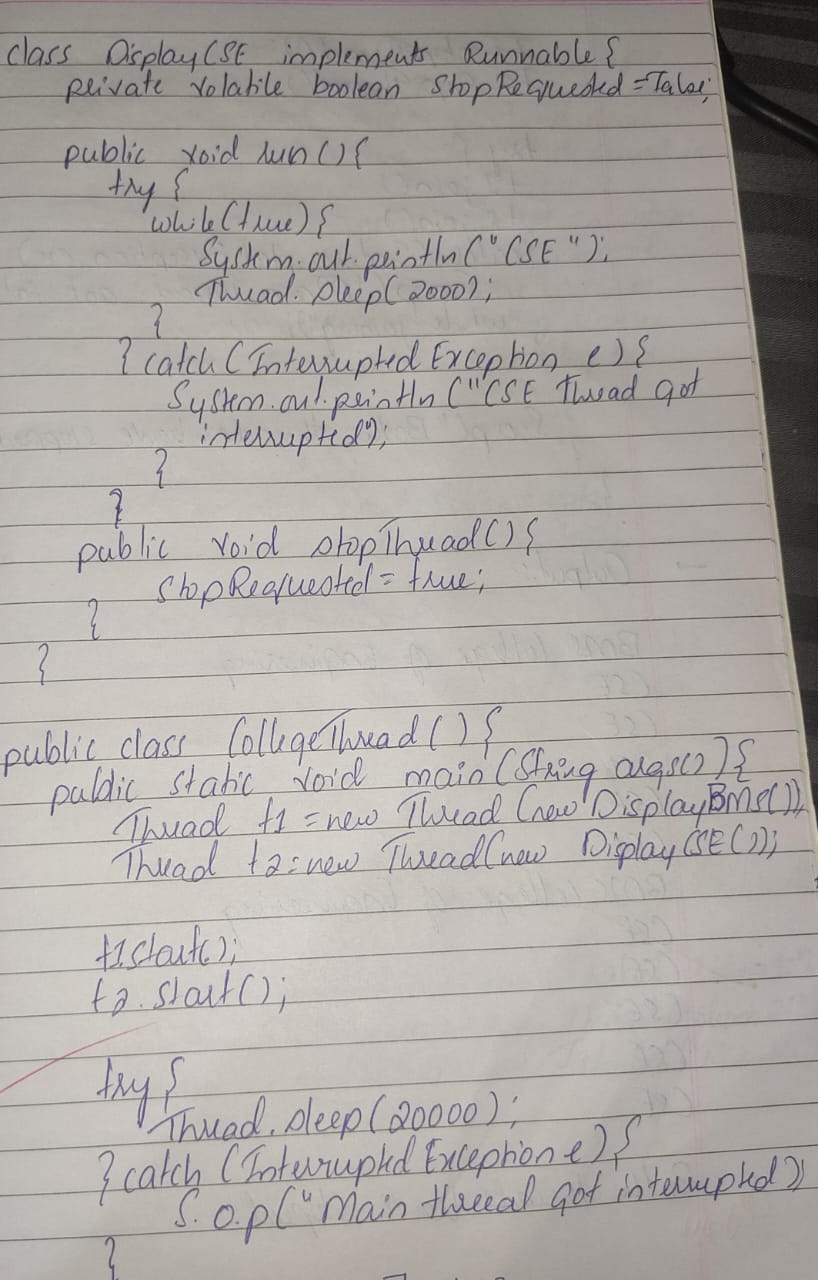 class DisplayCSE implements Runnable {
private volatile boolean stopRequested = False;
public void run() {
try {
while(true) {
System.out.println("CSE");
Thread.sleep(2000);
}
} catch (Interrupted Exception e) {
System.out.println("CSE Thread got
interrupted");
}
}
public void stopThread() {
stopRequested = true;
}
}
public class CollegeThread() {
public static void main (String args()) {
Thread t1 = new Thread (new DisplayBMS());
Thread t2 = new Thread(new DisplayCSE());
t1.start();
t2.start();
try {
Thread.sleep(20000);
} catch (Interrupted Exception e) {
S.o.p("Main threeal got interrupted)
}